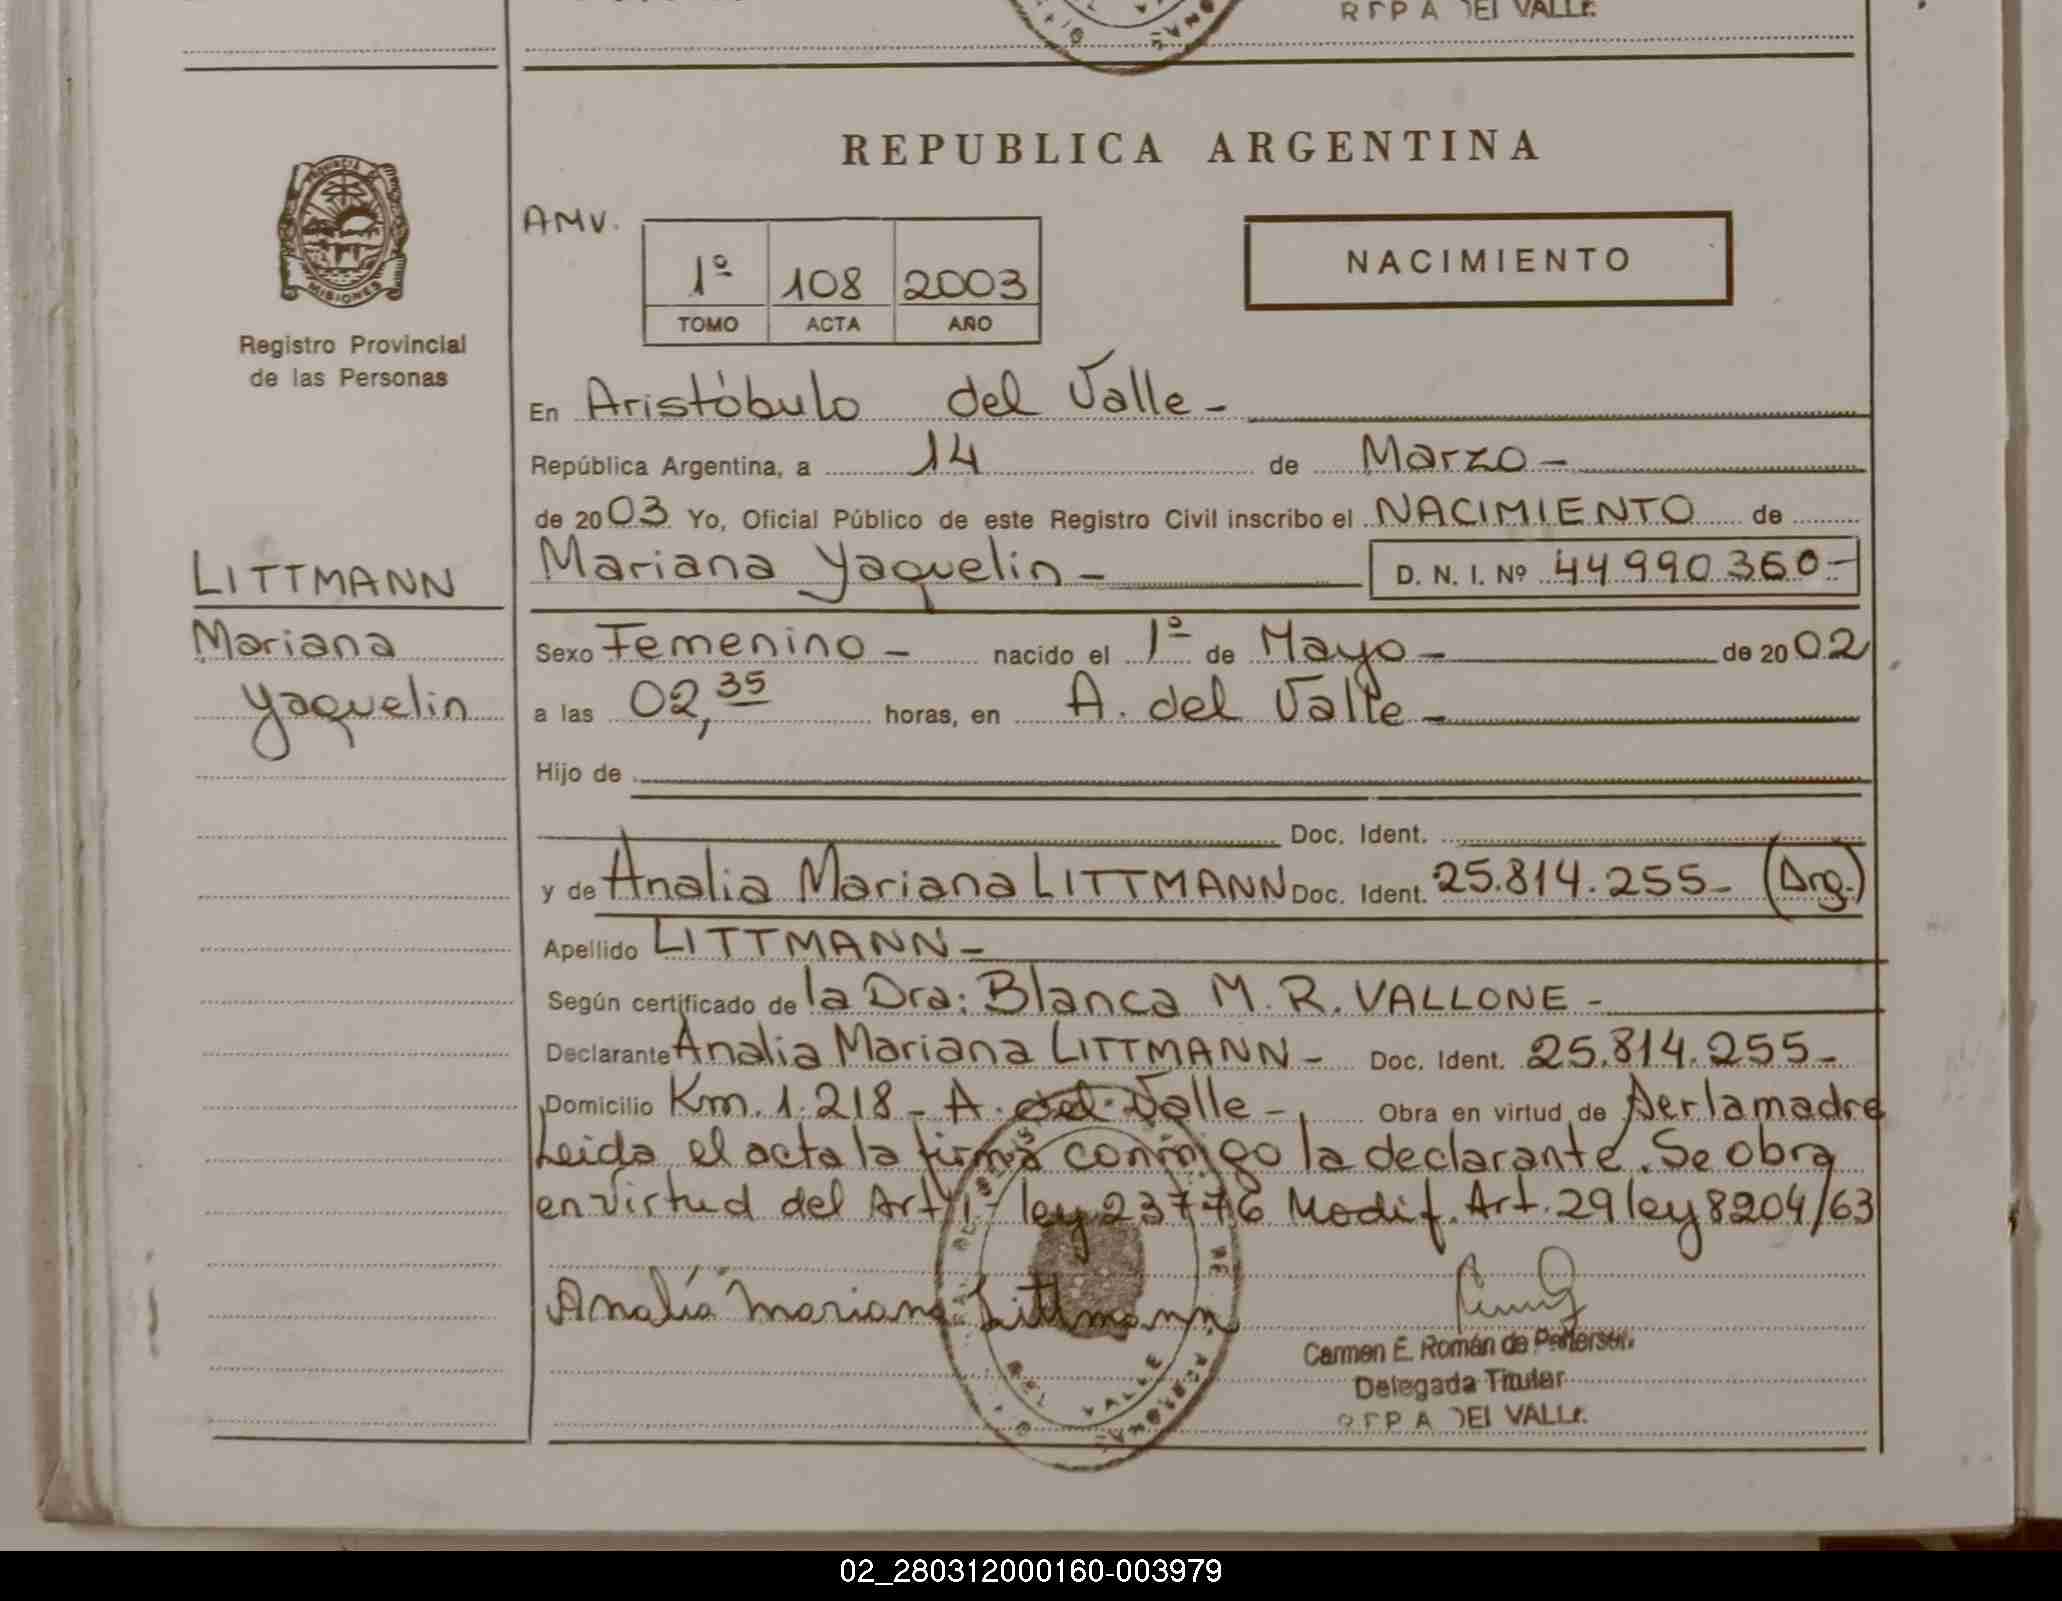 REPUBLICA ARGENTINA
PROVINCIA DE MISIONES
Registro Provincial
de las Personas
AMV.
1º 108 2003
TOMO ACTA AÑO
NACIMIENTO
En Aristóbulo del Valle -
República Argentina, a 14 de Marzo -
de 2003 Yo, Oficial Público de este Registro Civil inscribo el NACIMIENTO de
LITTMANN
Mariana Yaquelin
Mariana Yaquelin - D. N. I. Nº 44990360-
Sexo Femenino - nacido el 1º de Mayo - de 2002
a las 02,35 horas, en A. del Valle -
Hijo de
Doc. Ident.
y de Analia Mariana LITTMANN Doc. Ident. 25.814.255- (Arg.)
Apellido LITTMANN -
Según certificado de la Dra: Blanca M. R. VALLONE -
Declarante Analia Mariana LITTMANN - Doc. Ident. 25.814.255-
Domicilio Km. 1.218 - A. del Valle - Obra en virtud de ser la madre
Leida el acta la firma conmigo la declarante. Se obra
en virtud del Art 1- ley 23776 Modif. Art. 29 ley 8204/63
Analía Mariana Littmann
Carmen E. Román de
Delegada Titular
DEL VALLE
02_280312000160-003979